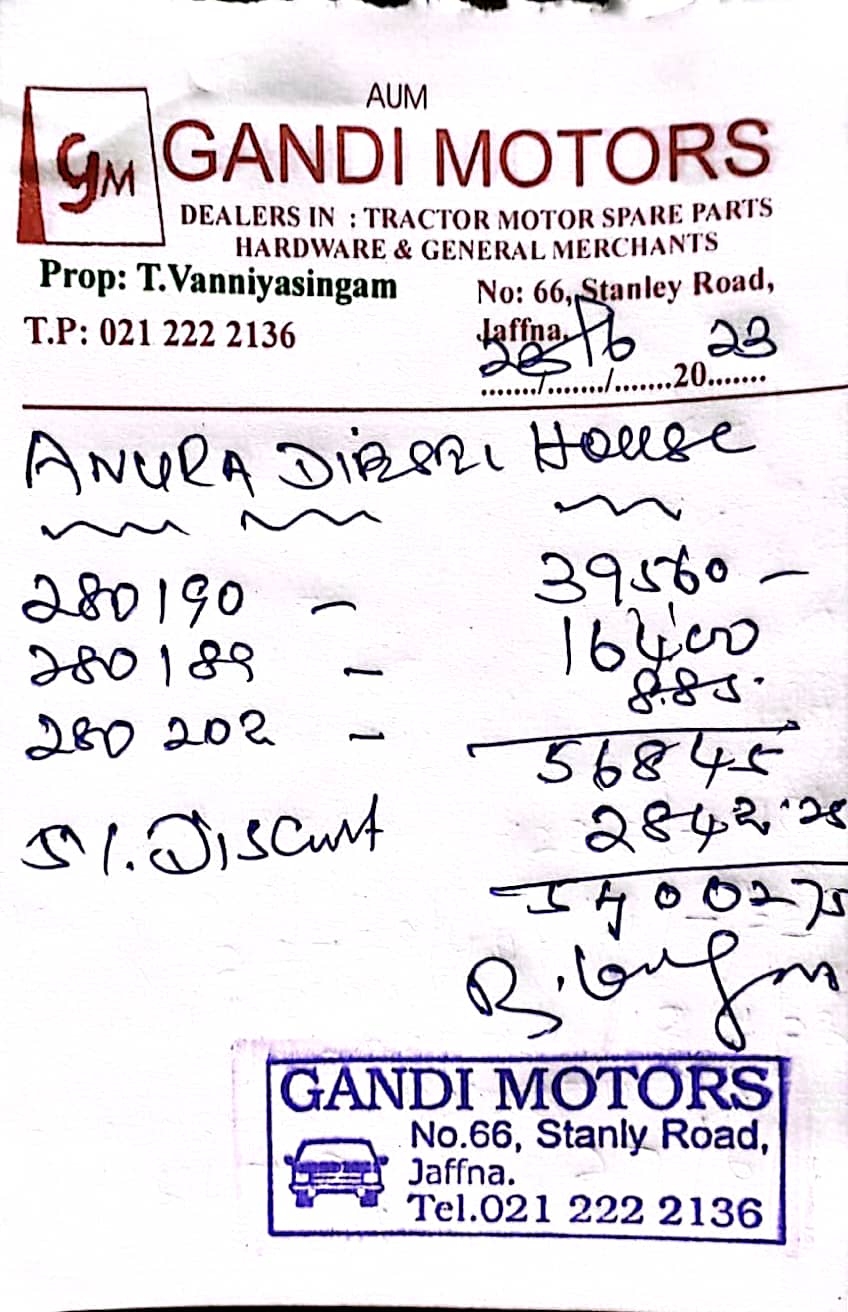 AUM
GM GANDI MOTORS
DEALERS IN : TRACTOR MOTOR SPARE PARTS
HARDWARE & GENERAL MERCHANTS
Prop: T.Vanniyasingam
No: 66, Stanley Road,
T.P: 021 222 2136
Jaffna.
......./......./.......20.......
23
ANURA DIESEL House
280190 - 39560 -
280189 - 16400
280 202 - 885.
56845
5%. Discunt 2842.25
5400275
GANDI MOTORS
No.66, Stanly Road,
Jaffna.
Tel.021 222 2136